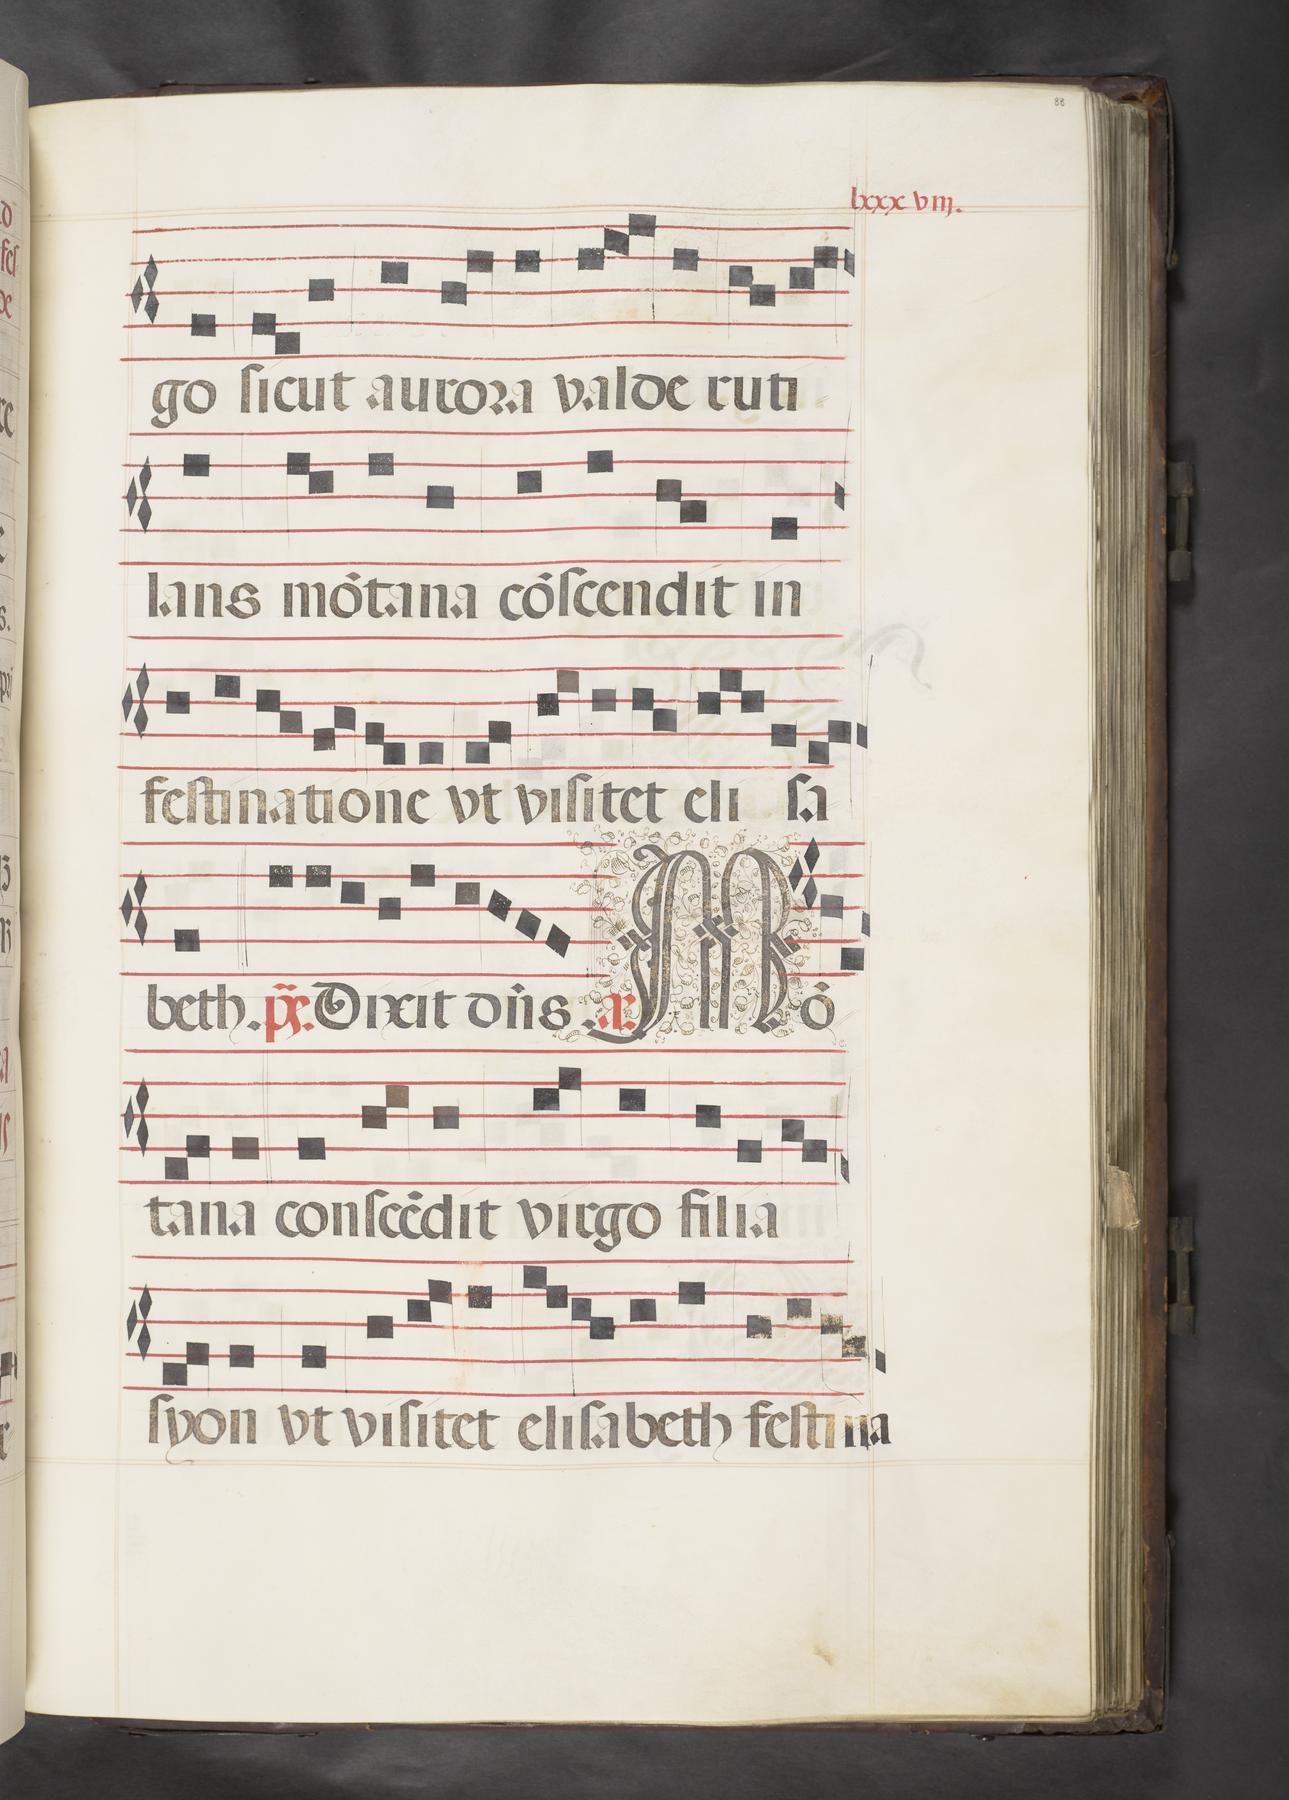 88
lxxxviij.
go sicut aurora valde ruti
lans mōtana cōscendit in
festinatione vt visitet eli sa
beth. ps. Dixit dn̄s a. Mō
tana conscēdit virgo filia
syon vt visitet elisabeth festina